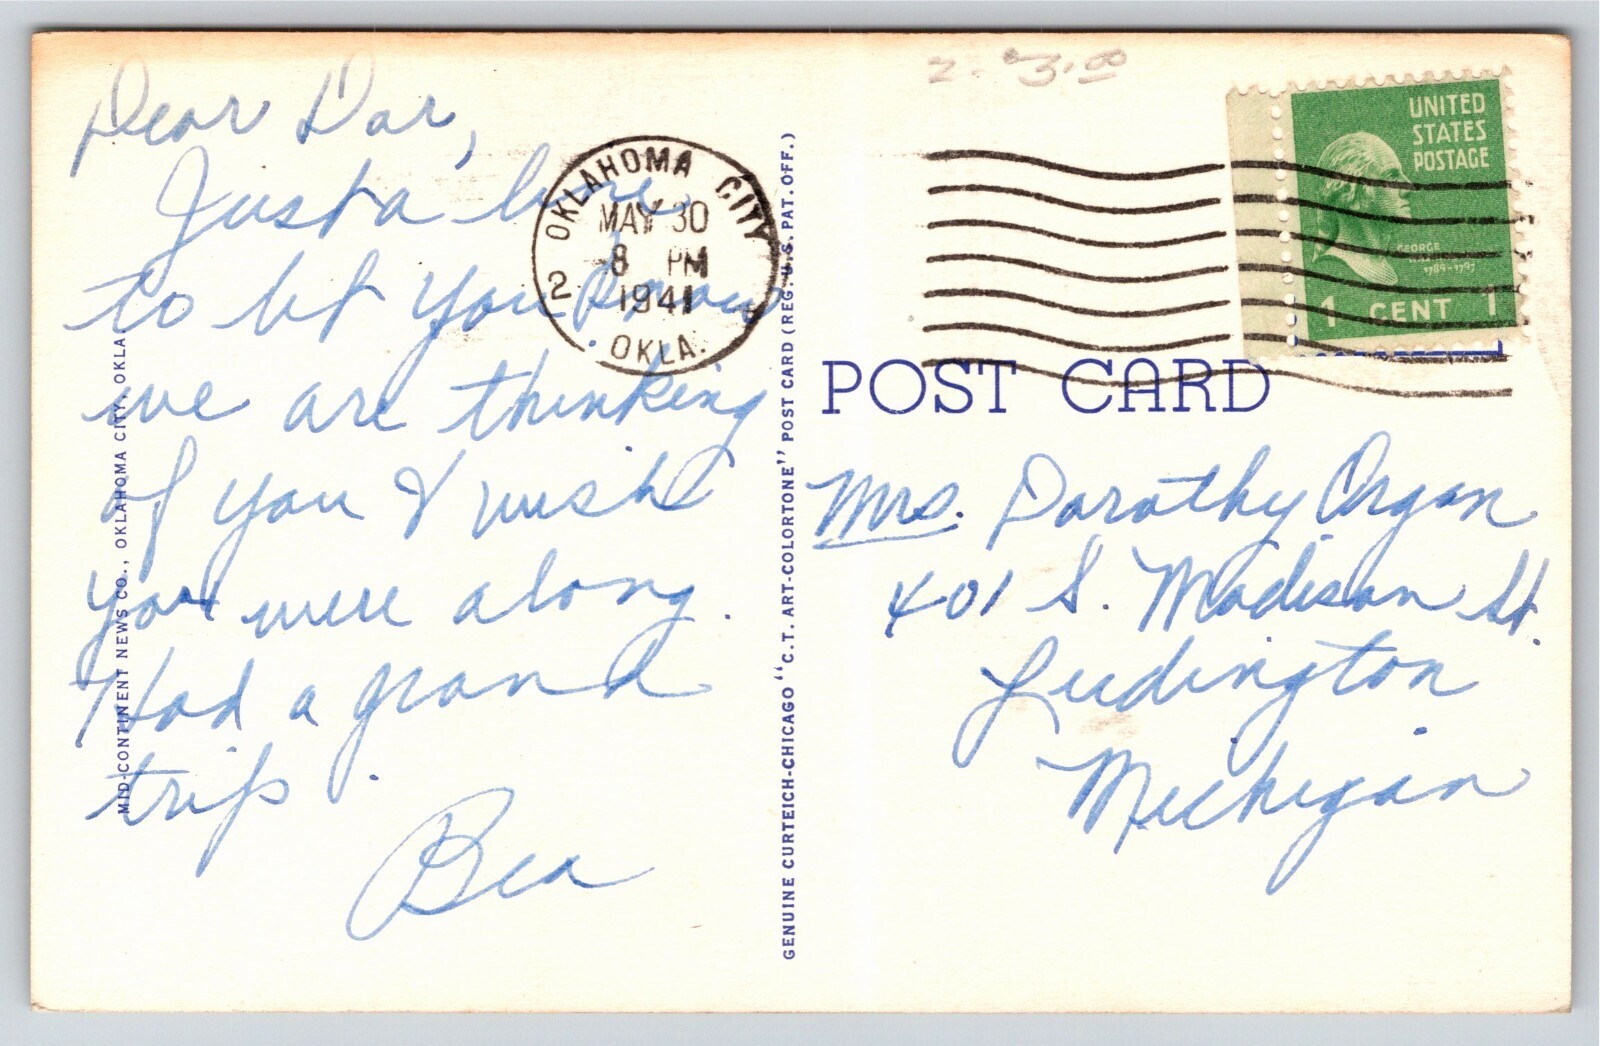 Dear Dar,
Just a line
to let you know
we are thinking
of you & wish
you were along.
Had a grand
trip.
Bea
OKLAHOMA CITY
MAY 30
8 PM
1941
2
OKLA.
MID-CONTINENT NEWS CO., OKLAHOMA CITY, OKLA.
GENUINE CURTEICH-CHICAGO "C.T. ART-COLORTONE" POST CARD (REG. U.S. PAT. OFF.)
2- $3.00
UNITED
STATES
POSTAGE
GEORGE
1789-1797
1 CENT 1
POST CARD
Mrs. Dorothy Organ
401 S. Madison St.
Ludington
Michigan